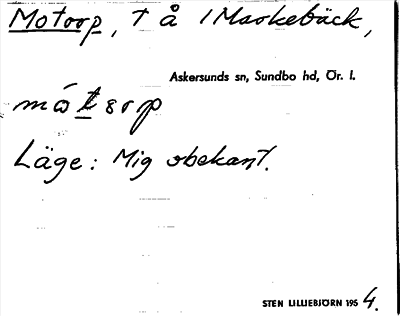 Motorp, T å 1 Maskebäck,
Askersunds sn, Sundbo hd, Ör. l.
mótorp
Läge: Mig obekant.
STEN LILLIEBJÖRN 195 4.